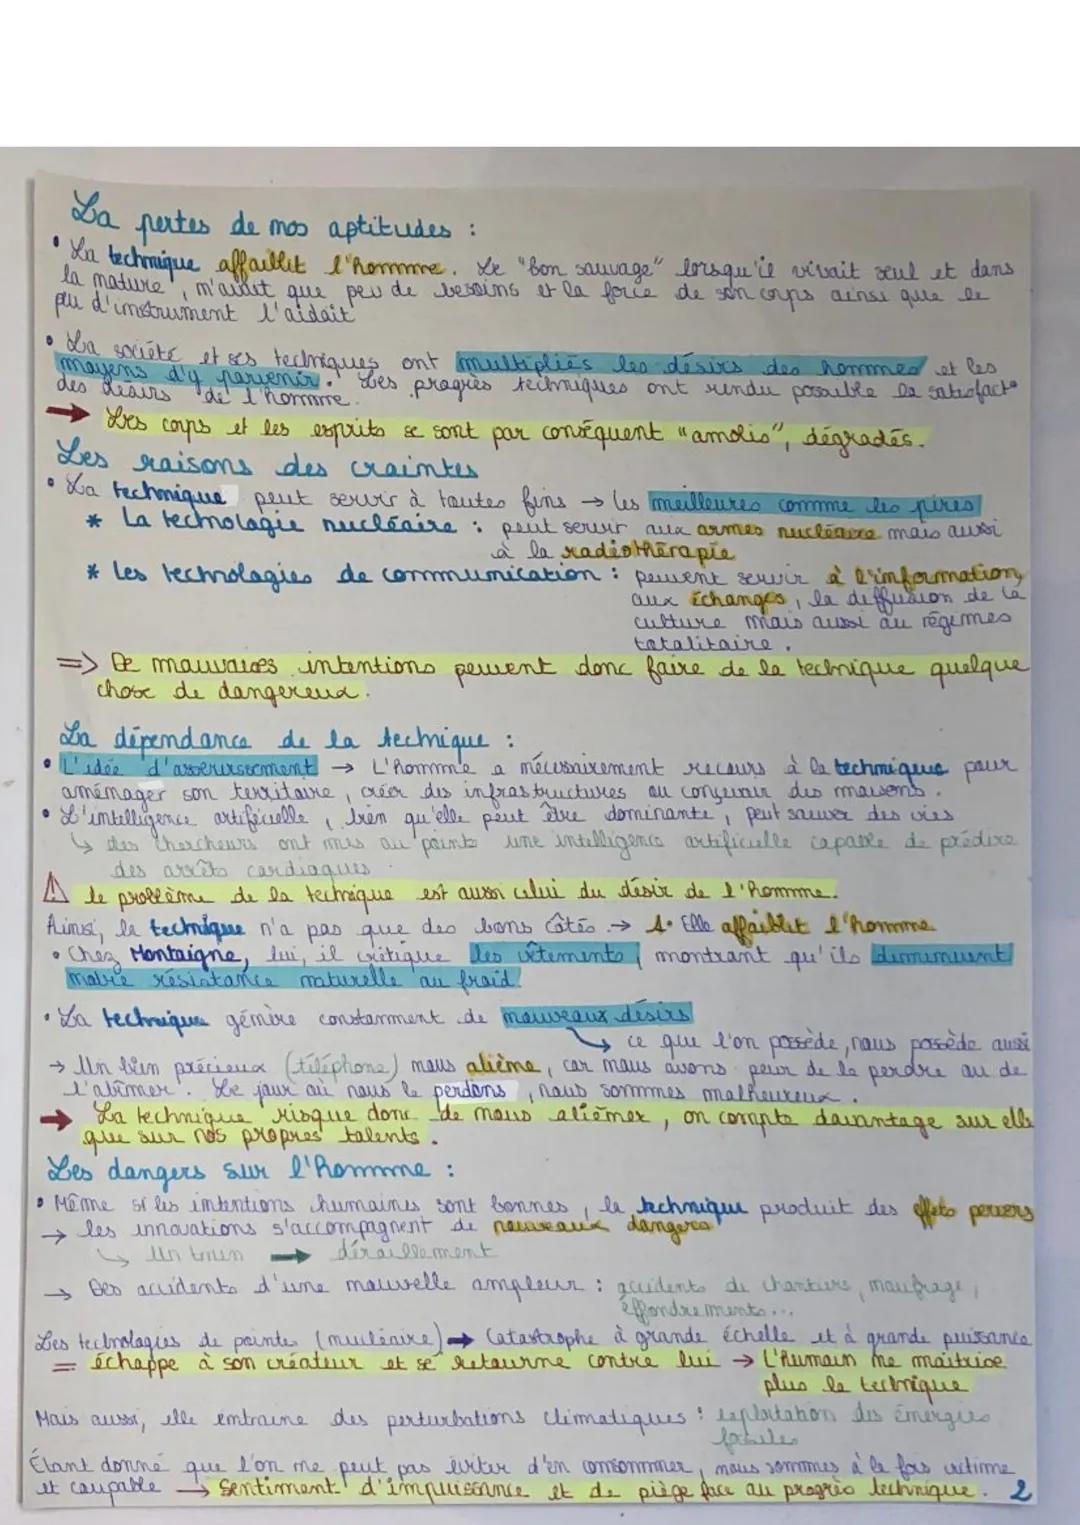 La pertes de nos aptitudes :
• La technique affaiblit l'homme. Le "bon sauvage" lorsqu'il vivait seul et dans
la nature, n'avait que peu de besoins et la force de son corps ainsi que le
peu d'instrument l'aidait
• La société et ses techniques ont multipliés les désirs des hommes et les
moyens d'y parvenir. Les progrès techniques ont rendu possible la satisfact°
des désirs de l'homme.
→ Les corps et les esprits se sont par conséquent "amolis", dégradés.
Les raisons des craintes
• La technique peut servir à toutes fins → les meilleures comme les pires
* La technologie nucléaire : peut servir aux armes nucléaire mais aussi
à la radiothérapie
* Les technologies de communication : peuvent servir à l'information,
aux échanges, la diffusion de la
culture mais aussi au régimes
totalitaire.
=> De mauvaises intentions peuvent donc faire de la technique quelque
chose de dangereux.
La dépendance de la technique :
• L'idée d'asservissement → L'homme a nécessairement recours à la technique pour
aménager son territoire, créer des infrastructures ou concevoir des maisons.
• L'intelligence artificielle, bien qu'elle peut être dominante, peut sauver des vies
↳ des chercheurs ont mis au point une intelligence artificielle capable de prédire
des arrêts cardiaques
⚠ le problème de la technique est aussi celui du désir de l'homme.
Ainsi, la technique n'a pas que des bons côtés → 1. Elle affaiblit l'homme
• Chez Montaigne, lui, il critique les vêtements, montrant qu'ils diminuent
notre résistance naturelle au froid.
• La technique génère constamment de nouveaux désirs
↳ ce que l'on possède, nous possède aussi
→ Un bien précieux (téléphone) nous aliène, car nous avons peur de le perdre ou de
l'abîmer. Le jour où nous le perdons, nous sommes malheureux.
→ La technique risque donc de nous aliéner, on compte davantage sur elle
que sur nos propres talents.
Les dangers sur l'homme :
• Même si les intentions humaines sont bonnes, la technique produit des effets pervers
→ les innovations s'accompagnent de nouveaux dangers
↳ Un train → déraillement
→ Des accidents d'une nouvelle ampleur : accidents de chantiers, naufrage,
éffondrements...
Les technologies de pointes (nucléaire) → Catastrophe à grande échelle et à grande puissance
= échappe à son créateur et se retourne contre lui → L'humain ne maîtrise
plus la technique
Mais aussi, elle entraine des perturbations climatiques : exploitation des énergies
fossiles
Étant donné que l'on ne peut pas éviter d'en consommer, nous sommes à la fois victime
et coupable → Sentiment d'impuissance et de piège face au progrès technique. 2